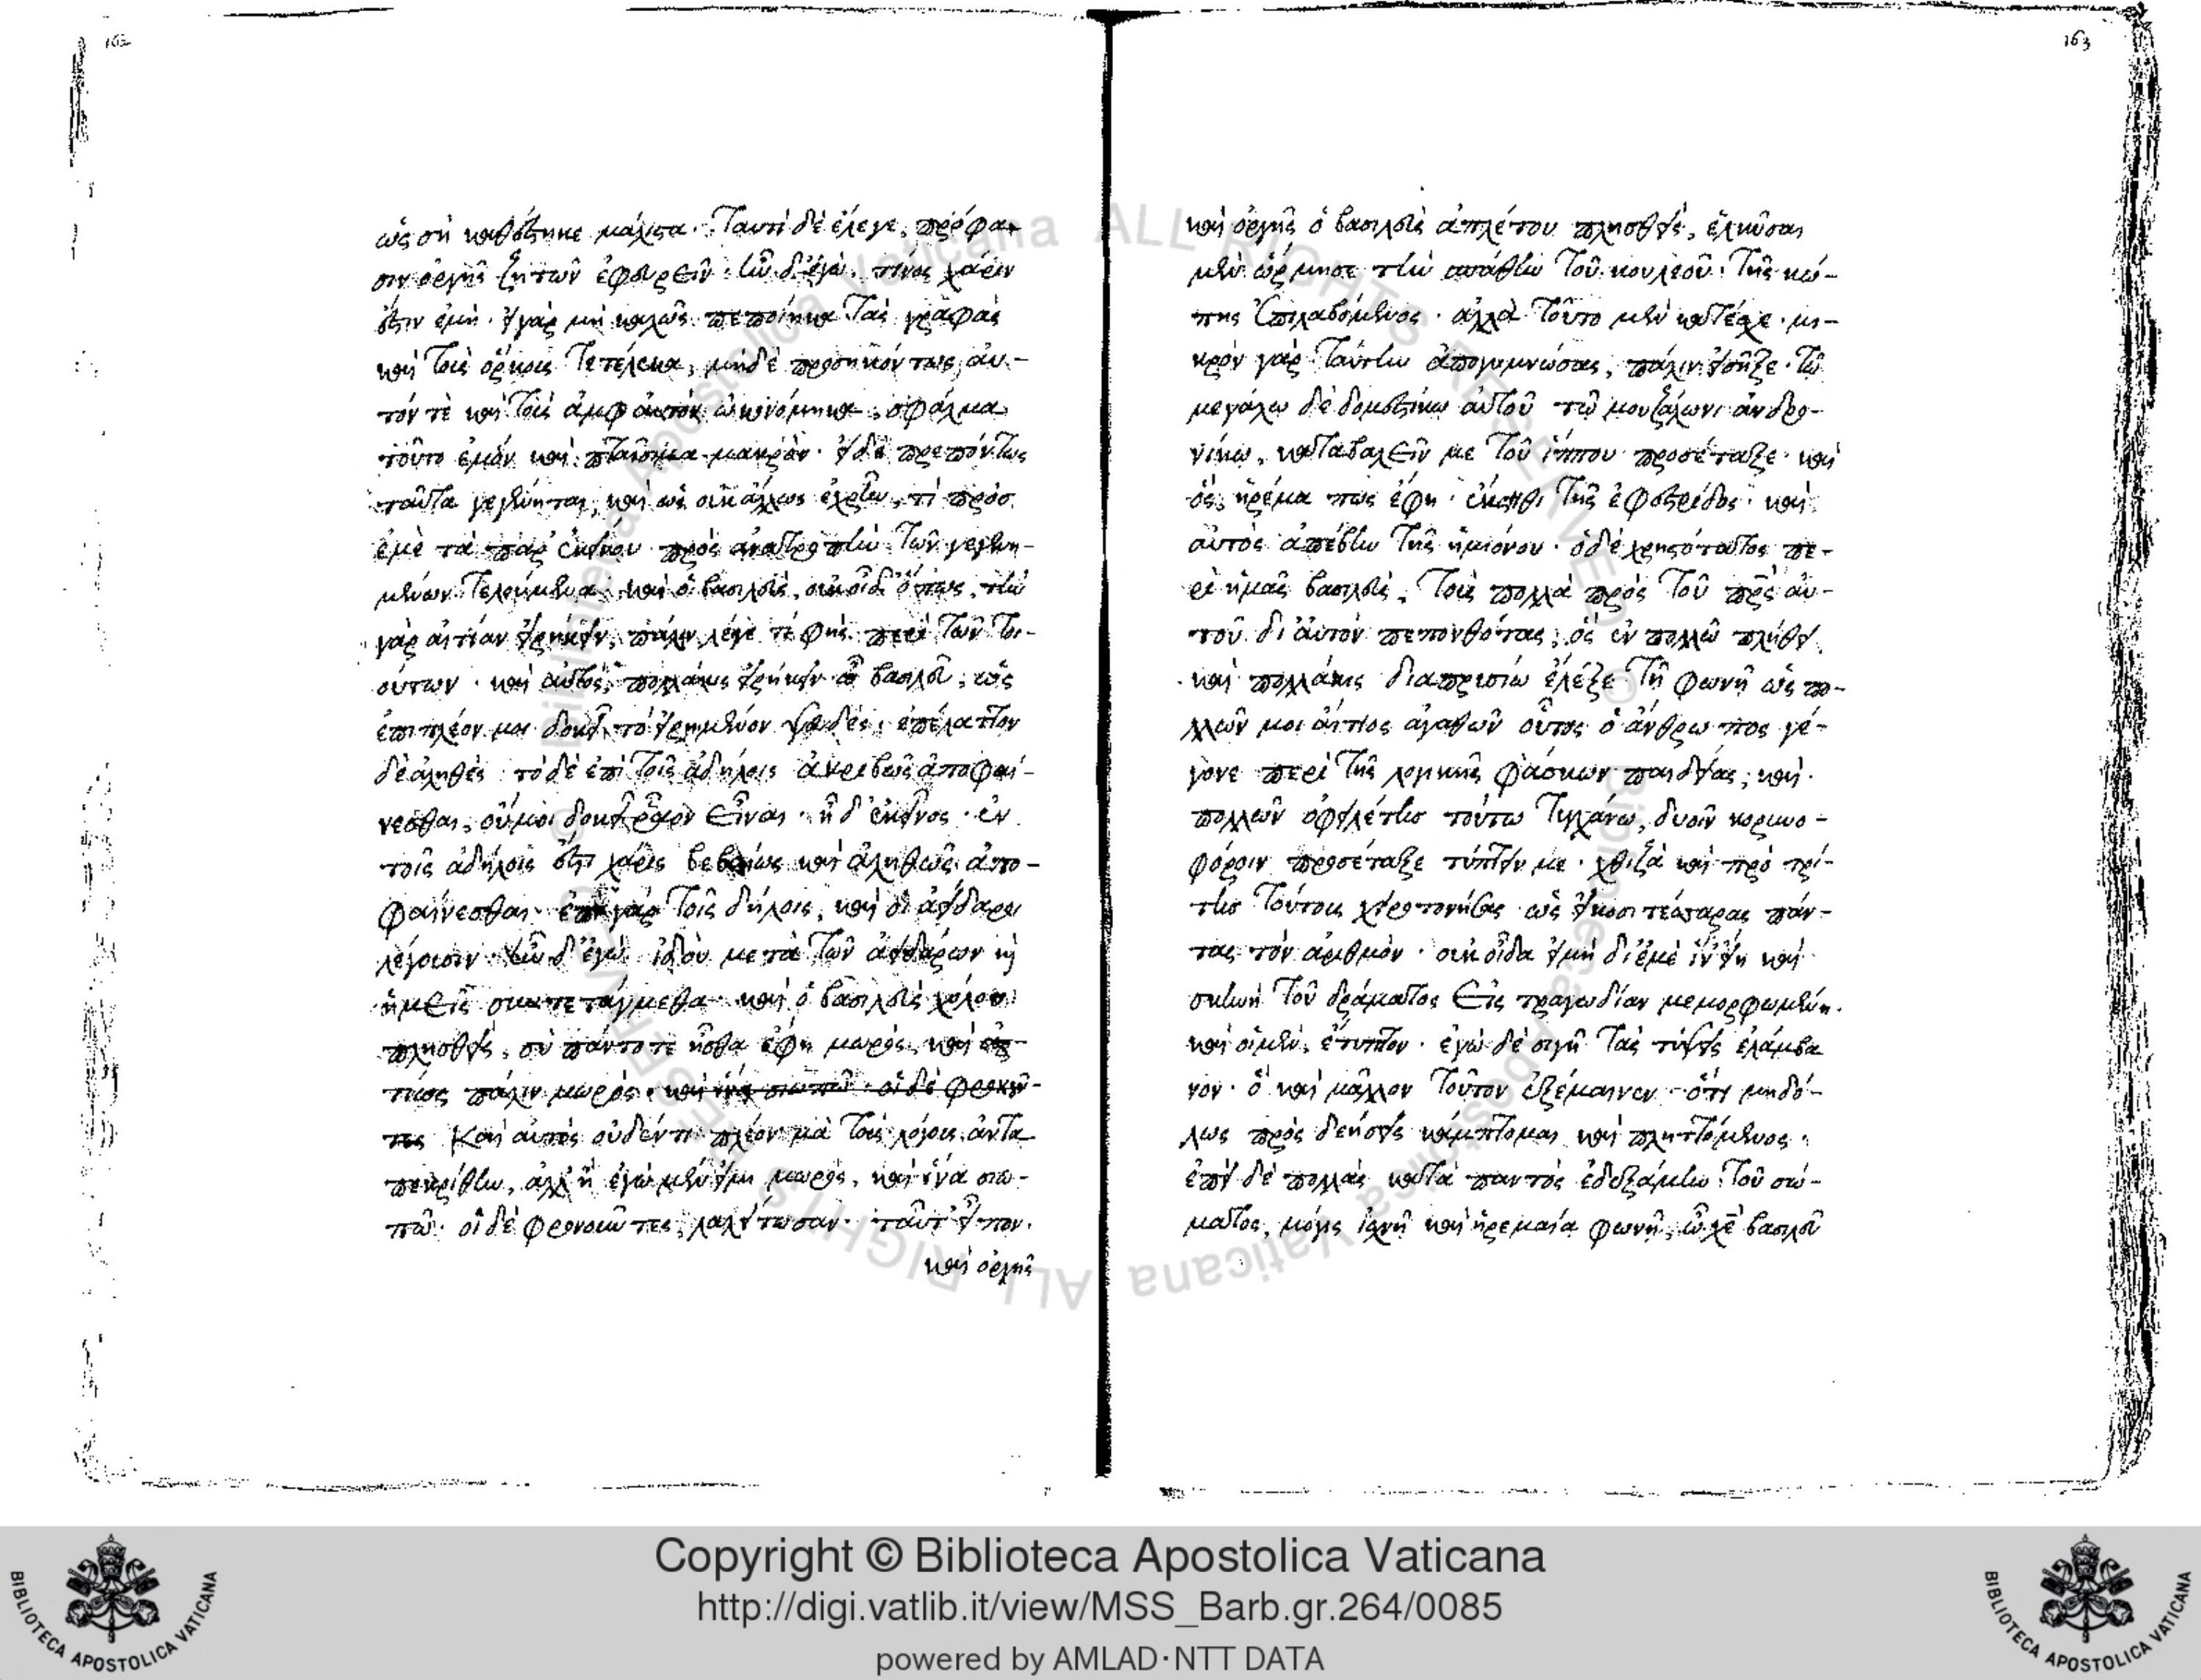 162
ὡς σὺ καθέστηκε μάλιστα. Ταυτὶ δὲ ἔλεγε, πρόφα-
σιν ὀργῆς ζητῶν ἐφευρεῖν. ἦν δ' ἐγὼ, τίνος χάριν
ἔστιν ἐμὴ. εἰ γὰρ μὴ καλῶς πεποίηκα τὰς γραφὰς
καὶ τοὺς ὅρκους τετέλεκα, μηδὲ προσηκόντως αὐ-
τόν τὲ καὶ τοὺς ἀμφ' αὐτὸν ὠκονόμηκα, σφάλμα
τοῦτο ἐμὸν καὶ πταῖσμα μακρὰν. εἰ δὲ πρεπόντως
ταῦτα γεγένηται, καὶ ὡς οὐκ ἄλλως ἐχρῆν, τί πρὸς
ἐμὲ τὰ παρ' ἐκείνου πρὸς ἀνατροπὴν τῶν γεγενη-
μένων τελούμενα. καὶ ὁ βασιλεὺς, οὐκ οἶδ' ὅπως, τὴν
γὰρ αἰτίαν εἰρήκειν, πάλιν λέγε τί φὴς περὶ τῶν τοι-
ούτων. καὶ αὐτὸς, πολλάκις εἰρήκειν ὦ βασιλεῦ, ὡς
ἐπιπλέον μοι δοκεῖ τὸ εἰρημένον ψευδὲς, ἐπέλαττον
δὲ ἀληθὲς. τὸ δὲ ἐπὶ τοῖς ἀδήλοις ἀκριβῶς ἀποφαί-
νεσθαι, οὔ μοι δοκεῖ ῥᾷον εἶναι. ἦ δ' ἐκεῖνος. ἐν
τοῖς ἀδήλοις ἔστι χάρις βεβαίως καὶ ἀληθῶς ἀπο-
φαίνεσθαι. ἐπεὶ γὰρ τοῖς δήλοις, καὶ οἱ ἀείδαροι
λέγουσιν. ἦν δ' ἐγὼ ἰδοὺ μετὰ τῶν ἀειδάρων κ
ἡμεῖς συντετάγμεθα. καὶ ὁ βασιλεὺς χόλου
πλησθεὶς, σὺ πάντοτε ἦσθα ἔφη μωρὸς, καὶ
πάλιν μωρὸς. καὶ ἵνα σιωπῶ. οἱ δὲ φρονοῦν-
τες Καὶ αὐτὸς οὐδέν τι πλέον μὰ τοὺς λόγους ἀντα
πεκρίθην, ἀλλ' ἢ ἐγὼ μὲν εἰμι μωρὸς, καὶ ἵνα σιω-
πῶ. οἱ δὲ φρονοῦντες, λαλείτωσαν. ταῦτ' εἶπον.
καὶ ὀργῆς
163
καὶ ὀργῆς ὁ βασιλεὺς ἀπλέτου πλησθεὶς, ἑλκῦσαι
μὲν ὥρμησε τὴν σπάθην τοῦ κουλεοῦ. τῆς κώ-
πης ἐπιλαβόμενος. ἀλλὰ τοῦτο μὲν κατέσχε. μι-
κρὸν γὰρ ταύτην ἀπογυμνώσας, πάλιν εἰσῆξε. τῷ
μεγάλω δὲ δομεστίκω αὐτοῦ τῷ μουζάλωνι ἀνδρο-
νίκω, καταβαλεῖν με τοῦ ἵππου προσέταξε. καὶ
ὃς, ἠρέμα πως ἔφη. ἔκστηθι τῆς ἐφεστρίδος. καὶ
αὐτὸς ἀπέβην τῆς ἡμιόνου. ὁ δὲ χρηστότατος πε-
ρὶ ἡμᾶς βασιλεὺς, τοὺς πολλὰ πρὸς τοῦ πρς αὐ-
τοῦ δι' αὐτὸν πεπονθότας, ὃς ἐν πολλῶ πλήθει
καὶ πολλάκις διαπρυσίω ἔλεξε τῇ φωνῇ ὡς πο-
λλῶν μοι αἴτιος ἀγαθῶν οὗτος ὁ ἄνθρωπος γέ-
γονε περὶ τῆς λογικῆς φάσκων παιδείας, καὶ
πολλῶν ὀφειλέτης τούτω τυγχάνω, δυοῖν κορυνο-
φόροιν προσέταξε τύπτειν με. χθιζὰ καὶ πρὸ τρί-
της τούτους χειροτονήσας ὡς εἴκοσι τέσσαρας πάν-
τας τὸν ἀριθμὸν. οὐκ οἶδα εἰ μὴ δι' ἐμὲ ἵν' εἴη καὶ
σκηνὴ τοῦ δράματος εἰς τραγωδίαν μεμορφωμένη.
καὶ οἱ μὲν, ἔτυπτον. ἐγὼ δὲ σιγῇ τὰς τύψεις ἐλάμβα
νον. ὃ καὶ μᾶλλον τοῦτον ἐξέμαινεν. ὅτι μηδό-
λως πρὸς δεήσεις κάμπτομαι καὶ πληττόμενος.
ἐπεὶ δὲ πολλὰς κατὰ παντὸς ἐδεξάμην τοῦ σώ-
ματος, μόγις ἰσχνῇ καὶ ἠρεμαία φωνῇ, ὦ χε βασιλεῦ
Copyright © Biblioteca Apostolica Vaticana
http://digi.vatlib.it/view/MSS_Barb.gr.264/0085
powered by AMLAD·NTT DATA